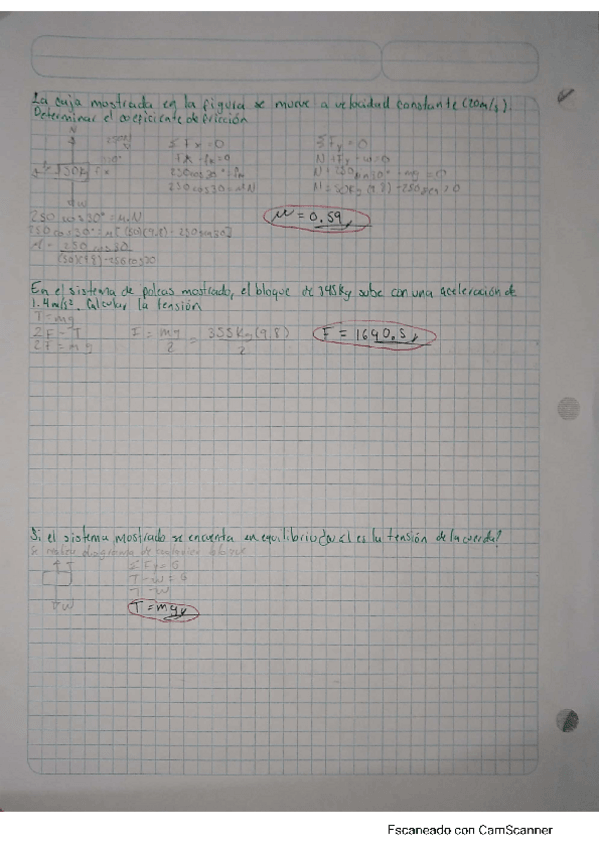 La caja mostrada en la figura se mueve a velocidad constante (20m/s).
Determinar el coeficiente de fricción
N
250N
30°
50kg
W
ΣFx=0
Fx - Fr=0
250cos30°=Fr
250cos30=μN
ΣFy=0
N+Fy-w=0
N+250sen30°-mg=0
N=50kg(9.8)-250sen30
250 cos30°=μN
250cos30°=μ[(50)(9.8)-250sen30]
μ= 250 cos30
(50)(9.8)-250sen30
μ=0.59
En el sistema de poleas mostrado, el bloque de 345kg sube con una aceleración de
1.4m/s². Calcular la tensión
T=mg
2F=T
2F=mg
F = mg = 335kg(9.8)
2 2
F = 1640.5
Si el sistema mostrado se encuenta en equilibrio ¿cual es la tensión de la cuerda?
Se realiza diagrama de cuerpo bloque
T
W
ΣFy=0
T-w=0
T=W
T=mg
Escaneado con CamScanner